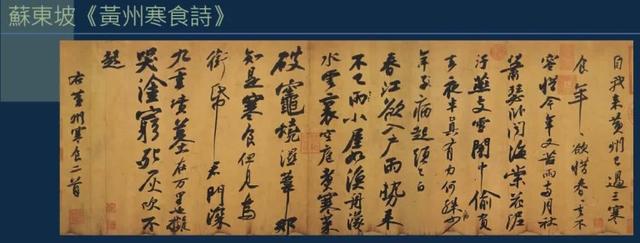 蘇東坡《黃州寒食詩》
自我來黃州已過三寒
食年〻欲惜春〻去不
容惜今年又苦雨兩月秋
蕭瑟臥聞海棠花泥
汙燕支雪闇中偷負
去夜半真有力何殊少
年子病起頭已白
春江欲入戶雨勢來
不已雨小屋如漁舟濛〻
水雲裏空庖煮寒菜
破竈燒濕葦那
知是寒食但見烏
銜帋君門深
九重墳墓在万里也擬
哭塗窮死灰吹不
起
右黃州寒食二首